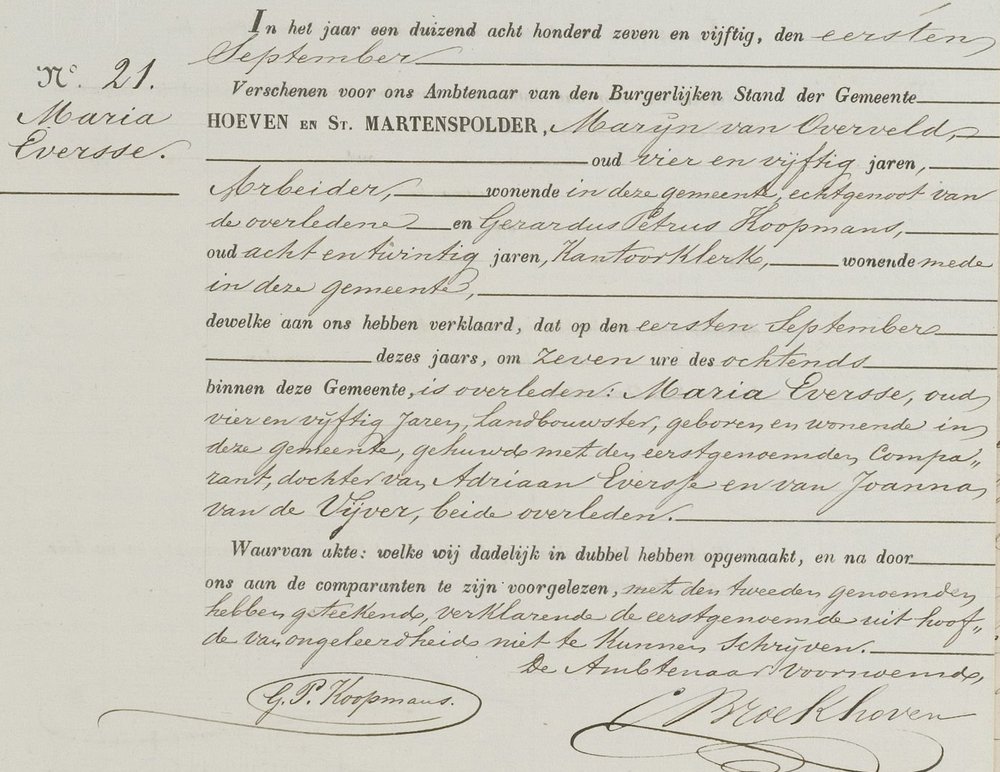 In het jaar een duizend acht honderd zeven en vijftig, den eersten
September
No. 21.
Maria
Eversse.
Verschenen voor ons Ambtenaar van den Burgerlijken Stand der Gemeente
HOEVEN EN ST. MARTENSPOLDER, Marijn van Overveld,
oud vier en vijftig jaren,
Arbeider, wonende in deze gemeente, echtgenoot van
de overledene en Gerardus Petrus Koopmans,
oud acht en twintig jaren, Kantoorklerk, wonende mede
in deze gemeente,
dewelke aan ons hebben verklaard, dat op den eersten September
dezes jaars, om zeven ure des ochtends
binnen deze Gemeente, is overleden: Maria Eversse, oud
vier en vijftig Jaren, Landbouwster, geboren en wonende in
deze gemeente, gehuwd met den eerstgenoemden Compa„
rant, dochter van Adriaan Eversse en van Joanna
van de Vijver, beide overleden.
Waarvan akte: welke wij dadelijk in dubbel hebben opgemaakt, en na door
ons aan de comparanten te zijn voorgelezen, met den tweeden genoemden
hebben geteekend, verklarende de eerstgenoemde uit hoof„
de van ongeleerdheid niet te kunnen schrijven.
De Ambtenaar voornoemd,
G. P. Koopmans.
C Broekhoven